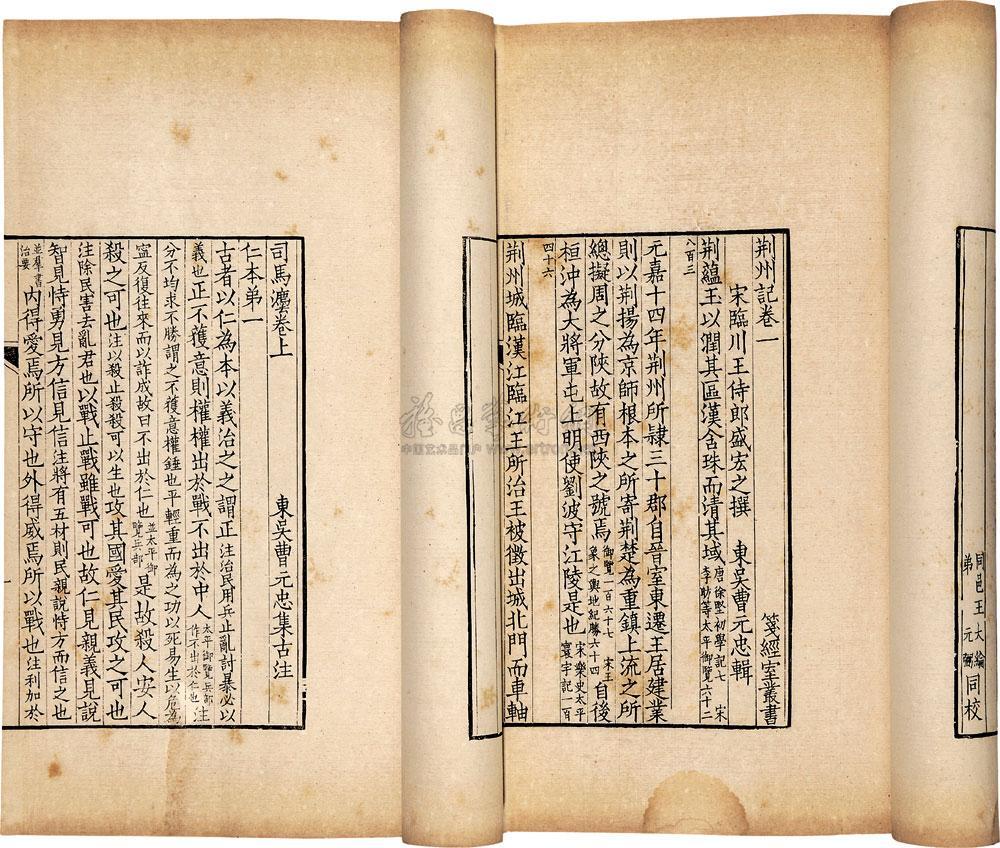 同邑王大綸
弟元弼同校
荆州記卷一
箋經室叢書
宋臨川王侍郎盛宏之撰 東吳曹元忠輯
荆藴玉以潤其區漢含珠而清其域唐徐堅初學記七 宋李昉等太平御覽六十二
八百三
元嘉十四年荆州所隸三十郡自晉室東遷王居建業
則以荆揚為京師根本之所寄荆楚為重鎮上流之所
總擬周之分陝故有西陝之號焉御覽一百六十七 宋王象之輿地紀勝六十四自後
桓沖為大將軍屯上明使劉波守江陵是也宋樂史太平寰宇記一百
四十六
荆州城臨漢江臨江王所治王被徵出城北門而車軸
司馬灋卷上
東吳曹元忠集古注
仁本弟一
古者以仁為本以義治之之謂正注治民用兵止亂討暴必以
義也正不獲意則權權出於戰不出於中人太平御覽兵部作不出於仁也注
分不均求不勝謂之不獲意權錘也平輕重而為之功以死易生以危為
寍反復往來而以詐成故曰不出於仁也並太平御覽兵部是故殺人安人
殺之可也注以殺止殺殺可以生也攻其國愛其民攻之可也
注除民害去亂君也以戰止戰雖戰可也故仁見親義見說
智見恃勇見方信見信注將有五材則民親說恃方而信之也
並羣書治要內得愛焉所以守也外得威焉所以戰也注利加於